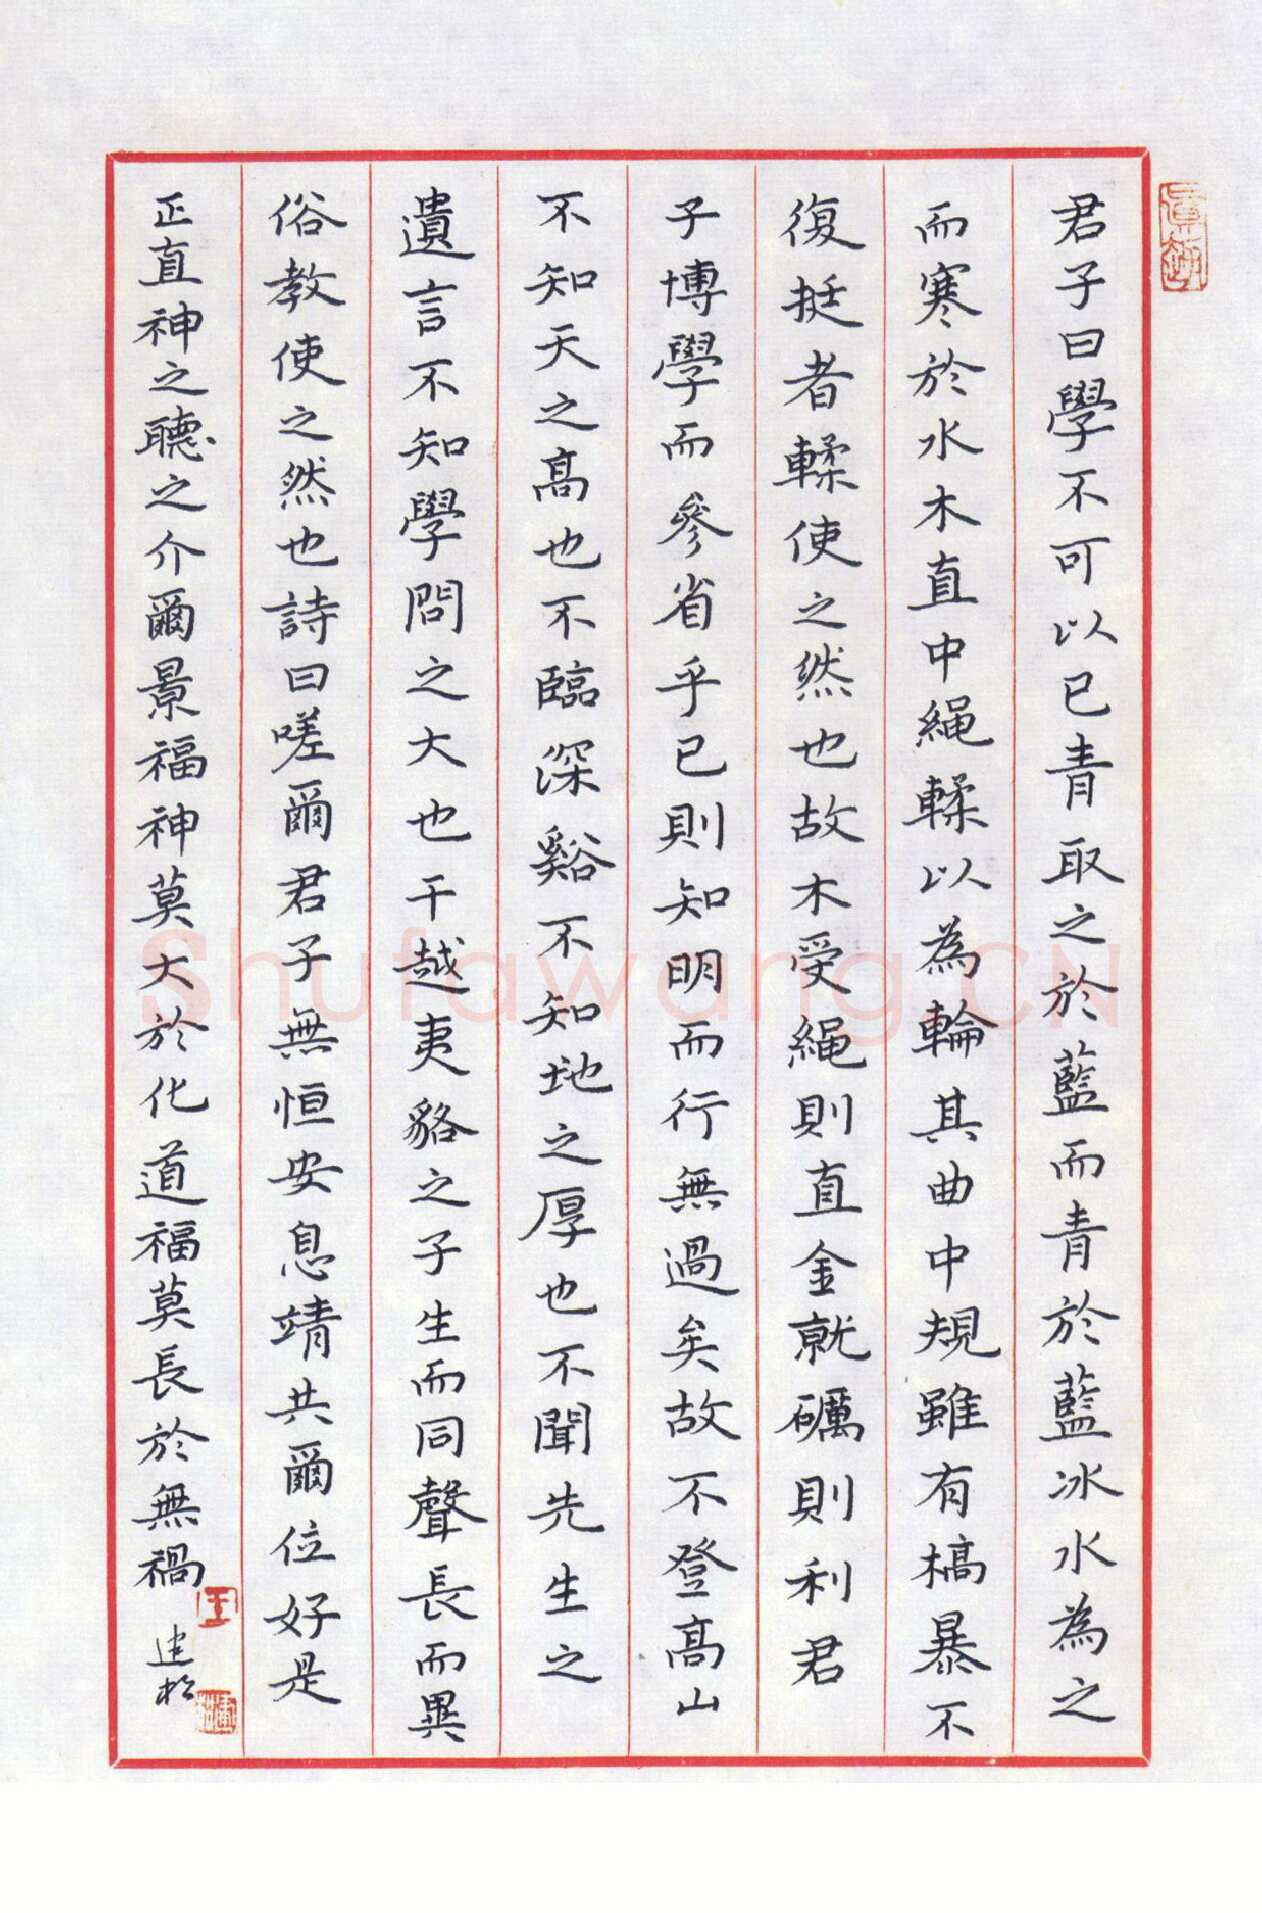 君子曰學不可以已青取之於藍而青於藍冰水為之
而寒於水木直中繩輮以為輪其曲中規雖有槁暴不
復挺者輮使之然也故木受繩則直金就礪則利君
子博學而參省乎己則知明而行無過矣故不登高山
不知天之高也不臨深谿不知地之厚也不聞先生之
遺言不知學問之大也干越夷貉之子生而同聲長而異
俗教使之然也詩曰嗟爾君子無恒安息靖共爾位好是
正直神之聽之介爾景福神莫大於化道福莫長於無禍
建松
王
Shufawang.CN